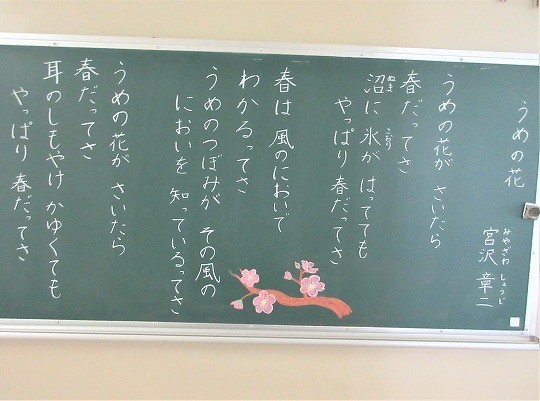 うめの花
みやざわ しょうじ
宮沢 章二
うめの花が さいたら
春だってさ
ぬま こおり
沼に 氷が はってても
やっぱり 春だってさ
春は 風のにおいで
わかるってさ
うめのつぼみが その風の
においを 知っているってさ
うめの花が さいたら
春だってさ
耳のしもやけ かゆくても
やっぱり 春だってさ